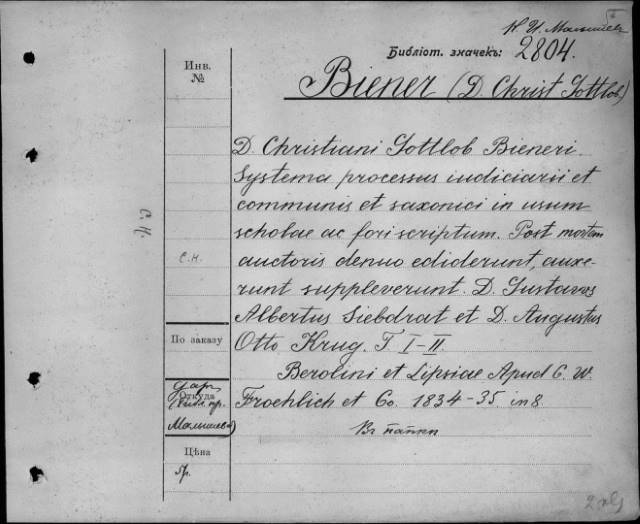 Н. И. Малышев
Библіот. значекъ: 2804.
Инв.
№
Biener (D. Christ Gottlob)
D. Christiani Gottlob Bieneri.
Systema processus iudiciarii et
communis et saxonici in usum
scholae ac fori scriptum. Post mortem
с. к.
auctoris denuo ediderunt, auxe-
runt suppleverunt. D. Gustavus
Albertus Siebdrat et D. Augustus
По заказу
Otto Krug. T. I-II
Berolini et Lipsiae Apud C. W.
даръ
Откуда
Froehlich et Co. 1834-35 in 8.
Малышева)
Въ папки
Цѣна